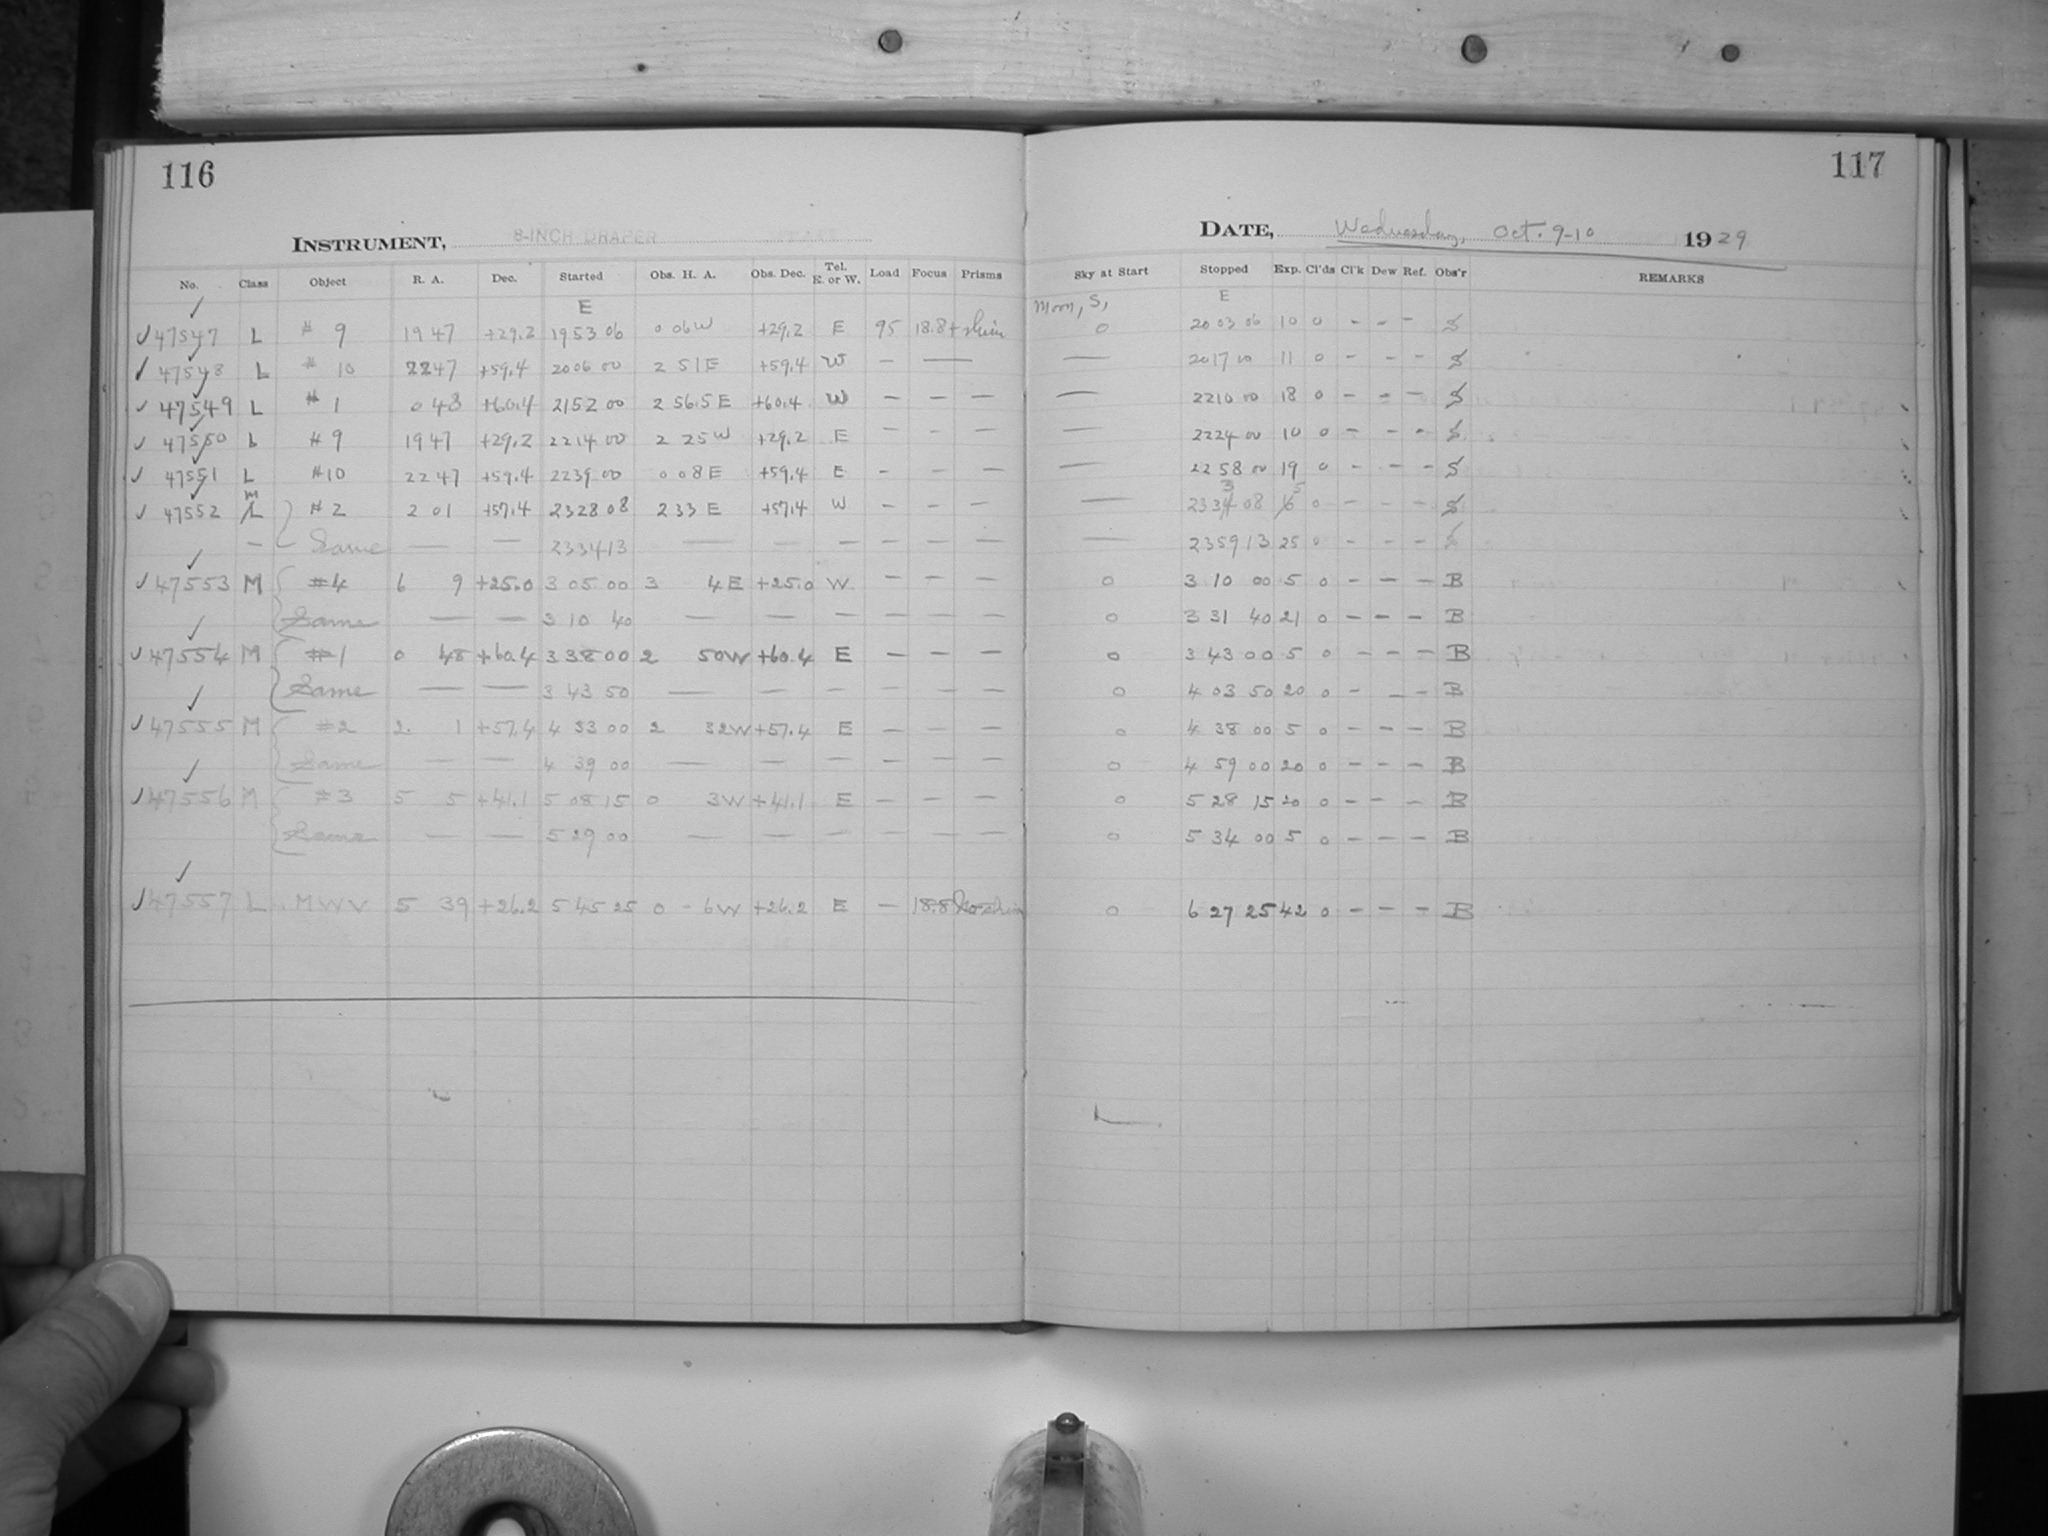 116
117
INSTRUMENT, 8-INCH DRAPER
DATE, Wednesday, Oct. 9-10 1929
No. Class Object R. A. Dec. Started Obs. H. A. Obs. Dec. Tel. E. or W. Load Focus Prisms Sky at Start Stopped Exp. Cl'ds Cl'k Dew Ref. Obs'r REMARKS
E Moon, S, E
✓ 47547 L # 9 19 47 +29.2 19 53 06 0 06 W +29.2 E 95 18.8 + shim 0 20 03 06 10 0 - - - S
✓ 47548 L # 10 22 47 +59.4 20 06 00 2 51 E +59.4 W — — — 20 17 00 11 0 - - - S
✓ 47549 L # 1 0 48 +60.4 21 52 00 2 56.5 E +60.4 W — — — — 22 10 00 18 0 - - - S
✓ 47550 L # 9 19 47 +29.2 22 14 00 2 25 W +29.2 E — — — — 22 24 00 10 0 - - - S
✓ 47551 L #10 22 47 +59.4 22 39 00 0 08 E +59.4 E — — — — 22 58 00 19 0 - - - S
M 3 5
✓ 47552 L # 2 2 01 +57.4 23 28 08 2 33 E +57.4 W — — — — 23 34 08 6 0 - - - S
— Same — — 23 34 13 — — — — — — — 23 59 13 25 0 - - - S
✓ 47553 M #4 6 9 +25.0 3 05 00 3 4 E +25.0 W — — — 0 3 10 00 5 0 - - - B
Same — — 3 10 40 — — — — — — 0 3 31 40 21 0 - - - B
✓ 47554 M #1 0 48 +60.4 3 38 00 2 50 W +60.4 E — — — 0 3 43 00 5 0 - - - B
Same — — 3 43 50 — — — — — — 0 4 03 50 20 0 - - - B
✓ 47555 M #2 2 1 +57.4 4 33 00 2 32 W +57.4 E — — — 0 4 38 00 5 0 - - - B
Same — — 4 39 00 — — — — — — 0 4 59 00 20 0 - - - B
✓ 47556 M #3 5 5 +41.1 5 08 15 0 3 W +41.1 E — — — 0 5 28 15 20 0 - - - B
Same — — 5 29 00 — — — — — — 0 5 34 00 5 0 - - - B
✓ 47557 L MWV 5 39 +26.2 5 45 25 0 - 6 W +26.2 E — 18.8 No shim 0 6 27 25 42 0 - - - B